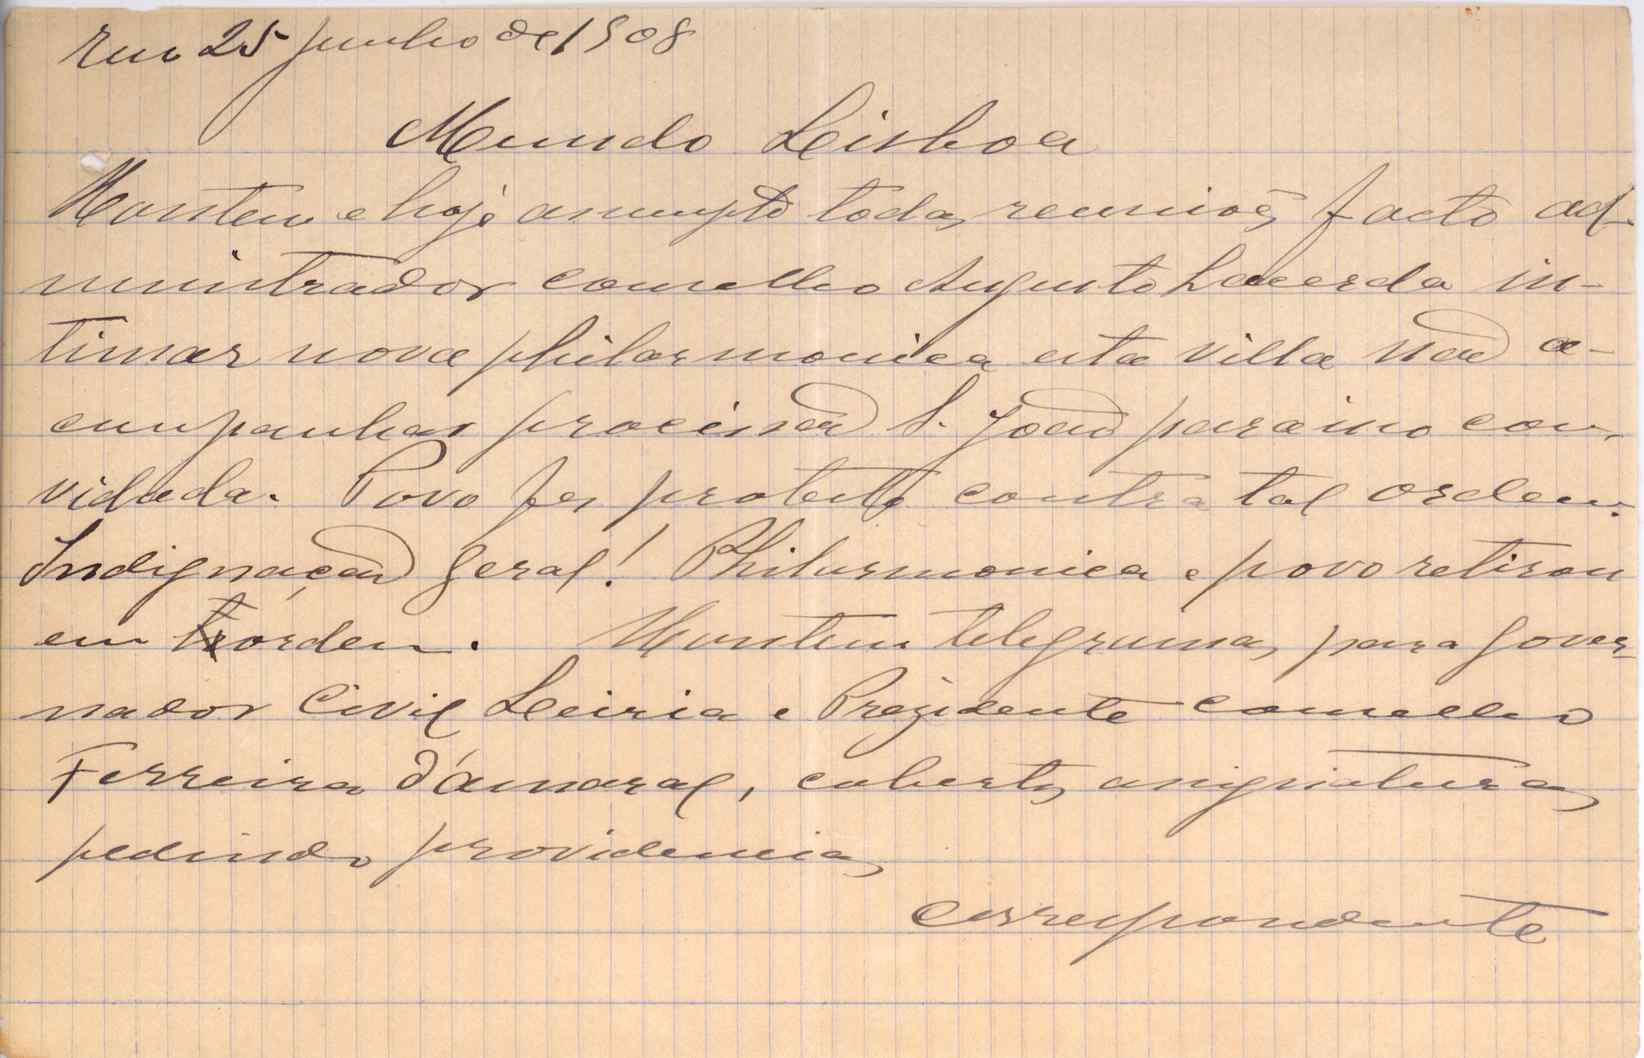 Em 25 Junho de 1908
Mundo Lisboa
Hontem e hoje assumpto todas reuniões facto ad-
ministrador concelho Augusto Lacerda in-
timar nova philarmonica esta villa não a-
companhar procissão S. João para isso con-
vidada. Povo fez protesto contra tal ordem.
Indignação geral! Philarmonica e povo retirou
em ordem. Hontem telegramas para gover-
nador Civil Leiria e Prezidente concelho
Ferreira d'amaral, cubertos assignaturas
pedindo providencias
correspondente